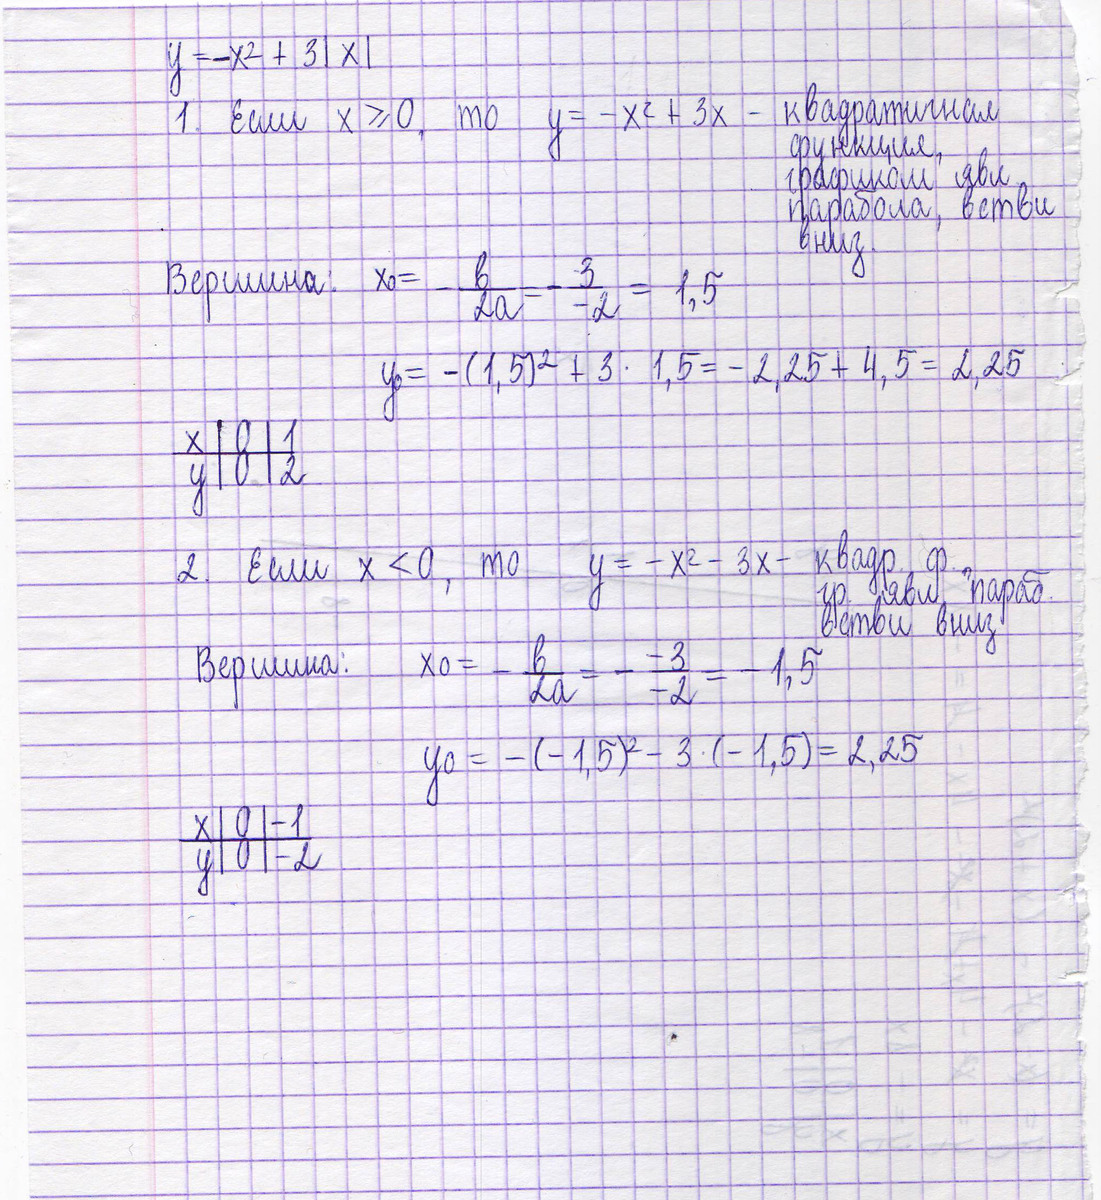 y = -x² + 3|x|
1. Если x ⩾ 0, то y = -x² + 3x - квадратичная
функция,
графиком явл.
парабола, ветви
вниз.
Вершина: x₀ = -b/2a = -3/-2 = 1,5
y₀ = -(1,5)² + 3 · 1,5 = -2,25 + 4,5 = 2,25
x | 0 | 1
y | 0 | 2
2. Если x < 0, то y = -x² - 3x - квадр. ф.,
гр. явл. параб.
ветви вниз
Вершина: x₀ = -b/2a = - -3/-2 = -1,5
y₀ = -(-1,5)² - 3 · (-1,5) = 2,25
x | 0 | -1
y | 0 | -2